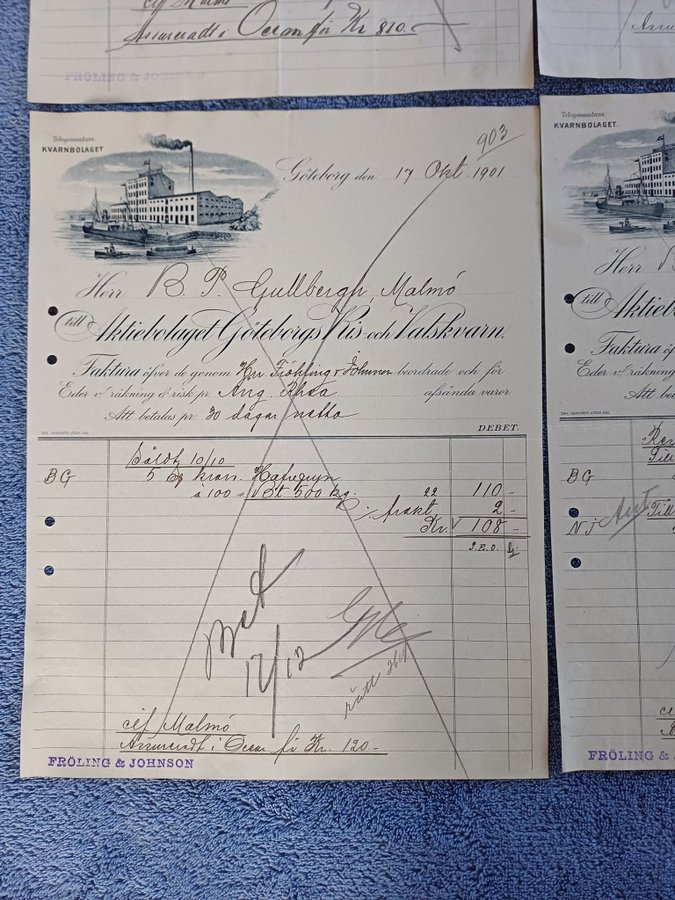 cif Malmö
Assureradt i Ocean för Kr 810.-
FRÖLING & JOHNSON
Telegramadress:
KVARNBOLAGET
903
Göteborg den 17 Okt. 1901
Herr B. P. Gullbergh, Malmö
till Aktiebolaget Göteborgs Ris- och Valskvarn.
Faktura öfver de genom Hrr Fröling & Johnson beordrade och för
Eder v/ räkning & risk pr. Ång. Rhea afsända varor
Att betalas pr. 30 dagar netto
DEBET.
Såldt 10/10
BG 5 Bg kross. Hafregryn
à 100 = St 500 kg. 22 110 -
% frakt 2 -
Kr. 108 -
S.E.O.
Bet
12/12
rätt
cif Malmö
Assureradt i Ocean för Kr. 120.-
FRÖLING & JOHNSON
Telegramadress:
KVARNBOLAGET.
Herr
till Aktieb
Faktura öf
Eder v/ räkning
Att beta
BG
NJ
Till
FRÖLING &